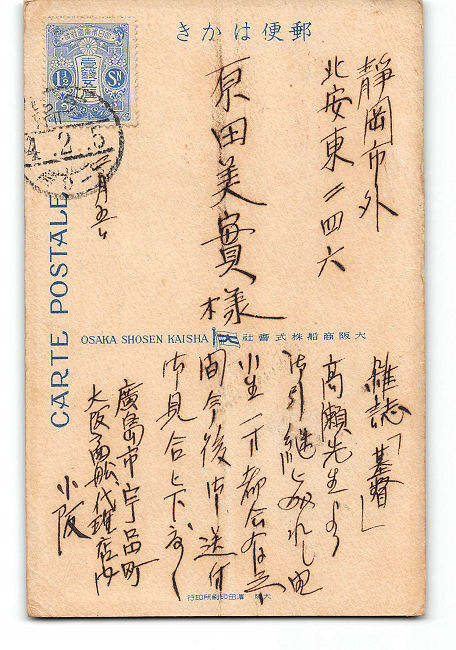 郵便はかき
CARTE POSTALE
壹錢五厘
1½ Sn
4.2.5
二月五日
靜岡市外
北安東二四六
原田美實樣
OSAKA SHOSEN KAISHA
大阪商船株式會社
雜誌「基督」
高瀬先生より
御引継
小生一寸都合有之
間今後御送付
御見合上下度
廣島市宇品町
大阪商船代理店内
小阪
大阪 濱田印刷所印行